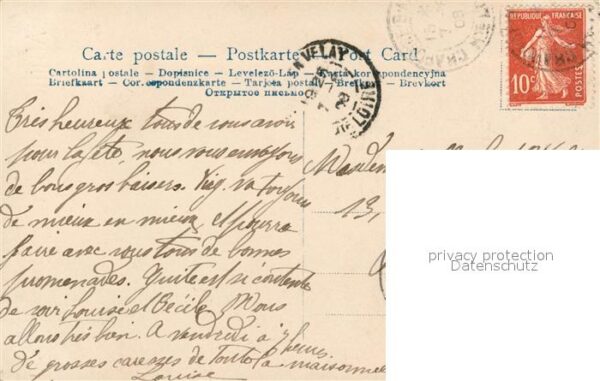 Carte postale — Postkarte — Post Card
Cartolina postale — Dopisnice — Levelező-Lap — Karta korespondencyjna
Briefkaart — Correspondenzkarte — Tarjeta postal — Brevkort — Brevkort
Открытое письмо
REPUBLIQUE FRANÇAISE
10c
VELAY
LOIRE
Très heureux tous de vous avoir
pour l'été, nous vous envoyons
de bons gros baisers. va toujours
de mieux en mieux, et pourra
faire avec vous tous de bonnes
promenades. est si contente
de voir Louise et Cécile. Nous
allons très bien. A vendredi à 7 heures
de grosses caresses de toute la maisonnée
Louise
13,
privacy protection
Datenschutz